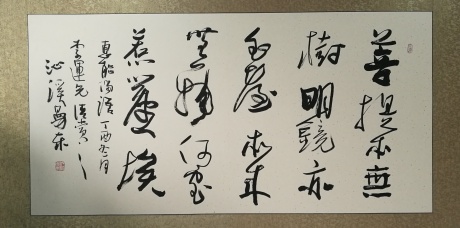 菩提本無
樹明鏡亦
非臺本來
無一物何處
惹塵埃
惠能偈語丁酉冬月
李運先
沁溪